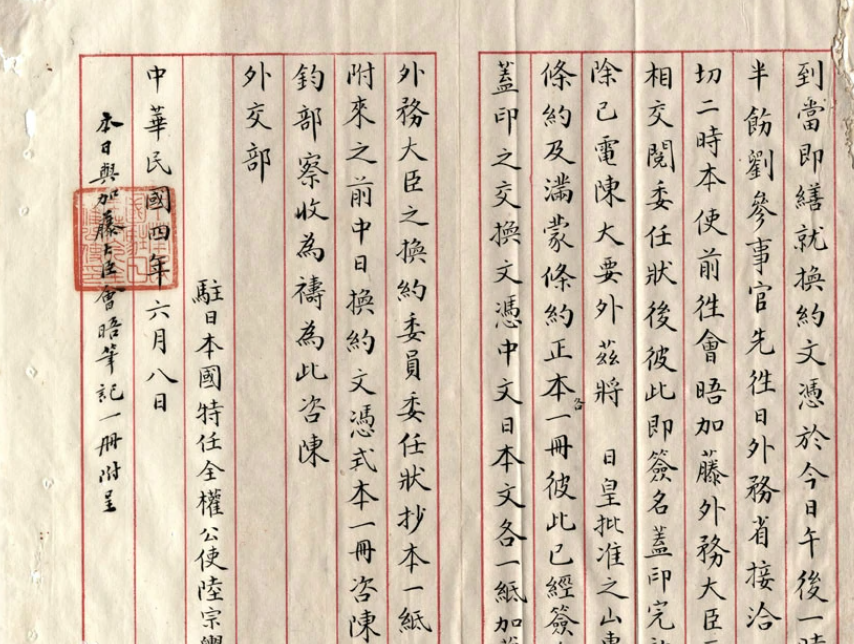 到當即繕就換約文憑於今日午後一時
半飭劉參事官先往日外務省接洽
切二時本使前往會晤加藤外務大臣
相交閱委任狀後彼此即簽名蓋印完
除已電陳大要外茲將 日皇批准之山東
條約及滿蒙條約正本各一冊彼此已經簽
蓋印之交換文憑中文日本文各一紙加
外務大臣之換約委員委任狀抄本一紙
附來之前中日換約文憑式本一冊咨陳
鈞部察收為禱為此咨陳
外交部
駐日本國特任全權公使陸宗輿
中華民國四年六月八日
本日與加藤大臣會晤筆記一冊附呈